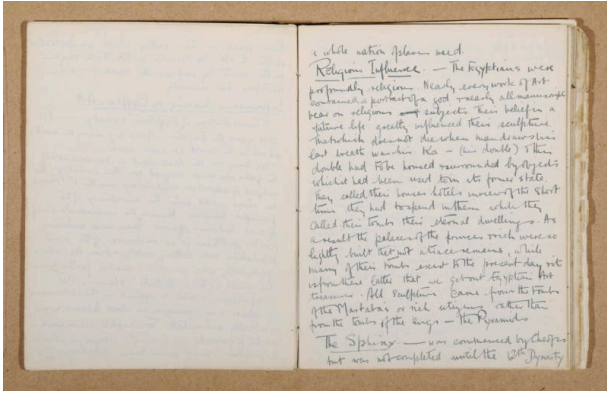 a whole nation of slaves used.
Religious Influence. — The Egyptians were
profoundly religious. Nearly every work of Art
contained a portrait of a god & nearly all manuscripts
bear on religious subjects. Their belief in a
future life greatly influenced their sculpture
that which does not die when man draws his
last breath was his Ka — (his double) & this
double had to be housed & surrounded by objects
which it had been used to in its former state
They called their houses hotels in view of the short
time they had to spend in them while they
called their tombs their eternal dwellings. As
a result the palaces of the princes & rich were so
lightly built that not a trace remains, while
many of their tombs exist to the present day & it
is from these latter that we get our Egyptian Art
treasures. All sculpture came from the tombs
of the Mastabas or rich citizens rather than
from the tombs of the kings — the Pyramids
The Sphinx — was commenced by Cheops
but was not completed until the 12th Dynasty